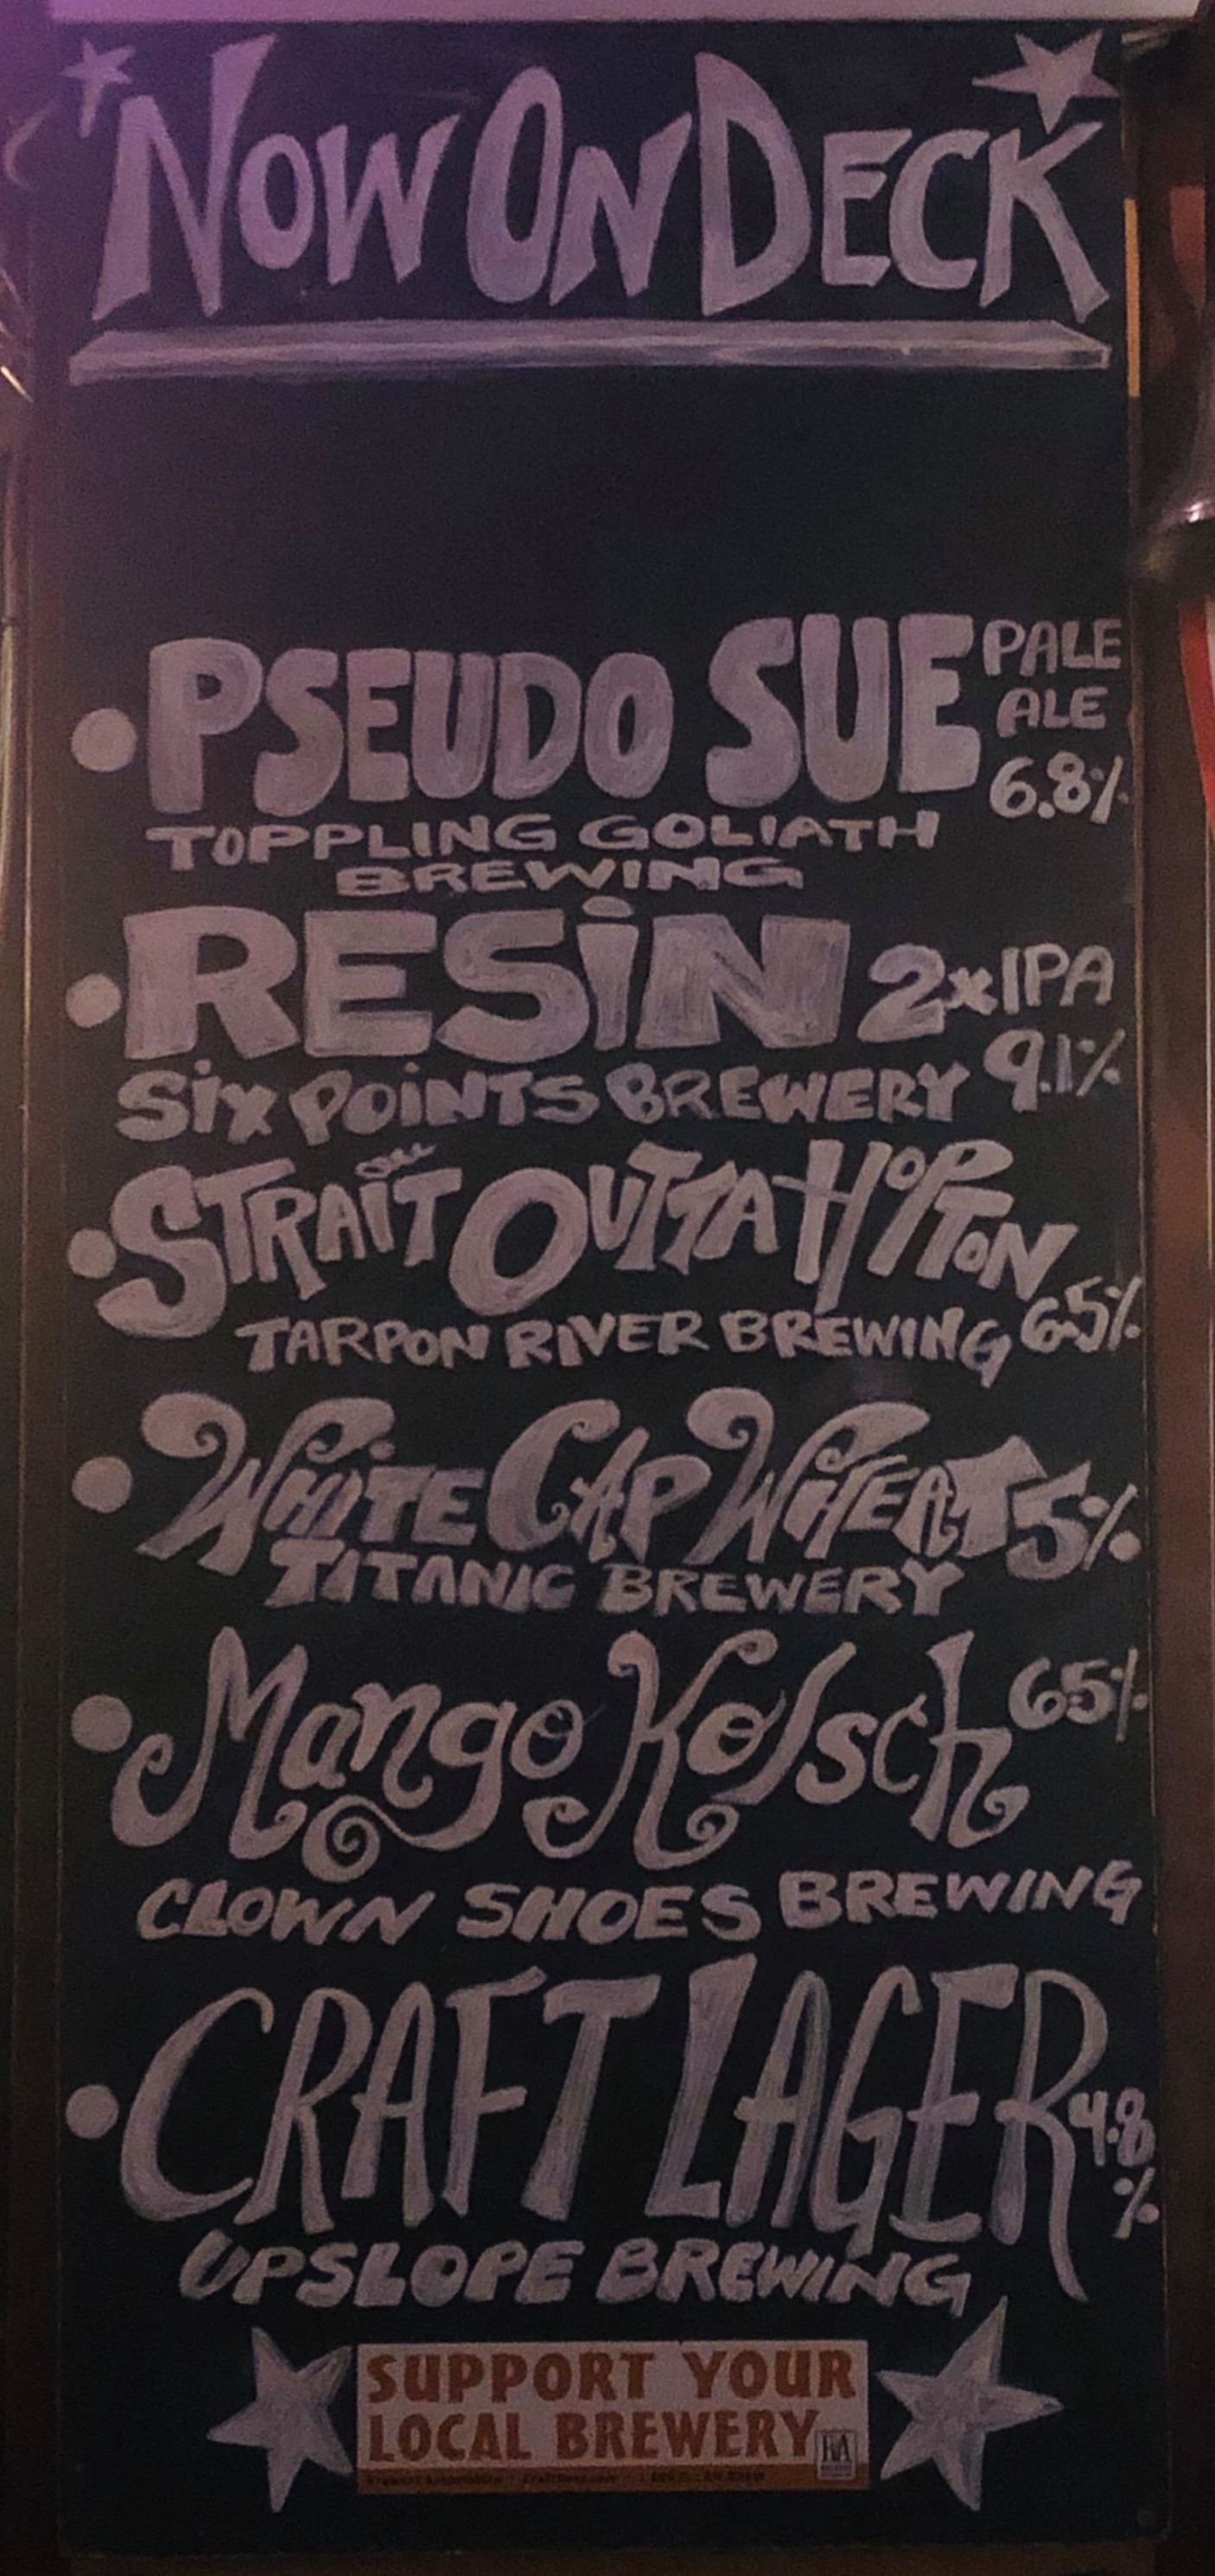 NOW ON DECK
PSEUDO SUE PALE
ALE
6.8%
TOPPLING GOLIATH
BREWING
RESiN 2xIPA
9.1%
SiX POiNTS BREWERY
STRAIT OUTTA HOPTON
TARPON RIVER BREWING 6.5%
WHITE CAP WHEAT 5%
TITANIC BREWERY
Mango Kolsch 6.5%
CLOWN SHOES BREWING
CRAFT LAGER 4.8
%
UPSLOPE BREWING
SUPPORT YOUR
LOCAL BREWERY